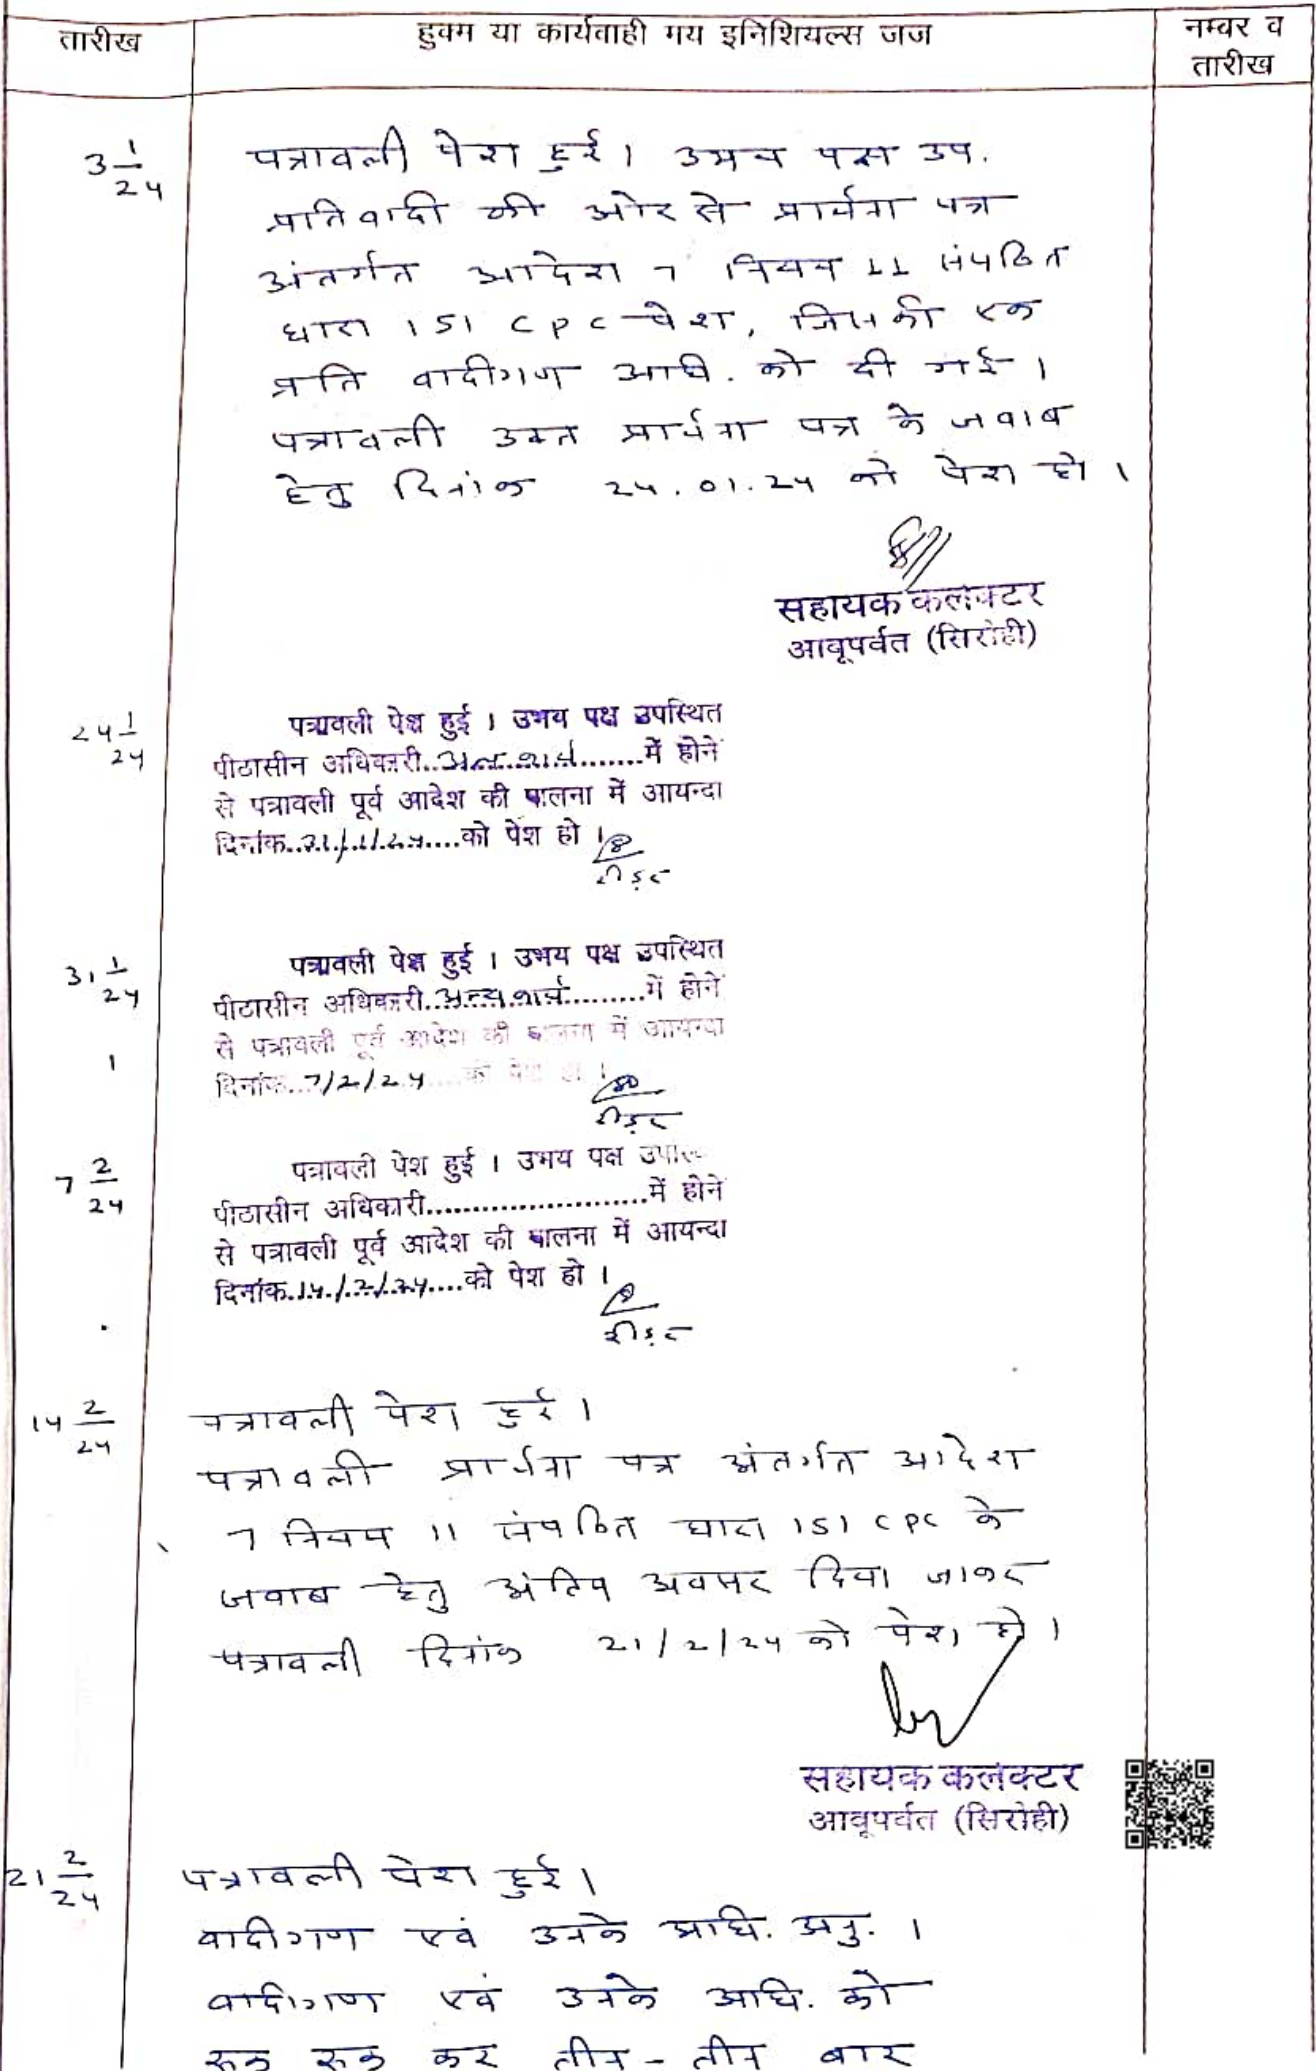 तारीख
हुक्म या कार्यवाही मय इनिशियल्स जज
नम्बर व
तारीख
3 1/24
पत्रावली पेश हुई। उभय पक्ष उप.
प्रतिवादी की ओर से प्रार्थना पत्र
अंतर्गत आदेश 7 नियम 11 संपठित
धारा 151 CPC पेश, जिसकी एक
प्रति वादीगण अधि. को दी गई।
पत्रावली उक्त प्रार्थना पत्र के जवाब
हेतु दिनांक 24.01.24 को पेश हो।
सहायक कलक्टर
आबूपर्वत (सिरोही)
24 1/24
पत्रावली पेश हुई। उभय पक्ष उपस्थित
पीठासीन अधिकारी..अन्य कार्य.......में होने
से पत्रावली पूर्व आदेश की पालना में आयन्दा
दिनांक..31/1/24....को पेश हो।
रीडर
31 1/24
पत्रावली पेश हुई। उभय पक्ष उपस्थित
पीठासीन अधिकारी..अन्य कार्य.........में होने
से पत्रावली पूर्व आदेश की पालना में आयन्दा
दिनांक...7/2/24....को पेश हो।
रीडर
7 2/24
पत्रावली पेश हुई। उभय पक्ष
पीठासीन अधिकारी........................में होने
से पत्रावली पूर्व आदेश की पालना में आयन्दा
दिनांक..14/2/24....को पेश हो।
रीडर
14 2/24
पत्रावली पेश हुई।
पत्रावली प्रार्थना पत्र अंतर्गत आदेश
7 नियम 11 संपठित धारा 151 CPC के
जवाब हेतु अंतिम अवसर दिया जाकर
पत्रावली दिनांक 21/2/24 को पेश हो।
सहायक कलक्टर
आबूपर्वत (सिरोही)
21 2/24
पत्रावली पेश हुई।
वादीगण एवं उनके अधि. अनु.।
वादीगण एवं उनके अधि. को
रूक रूक कर तीन-तीन बार